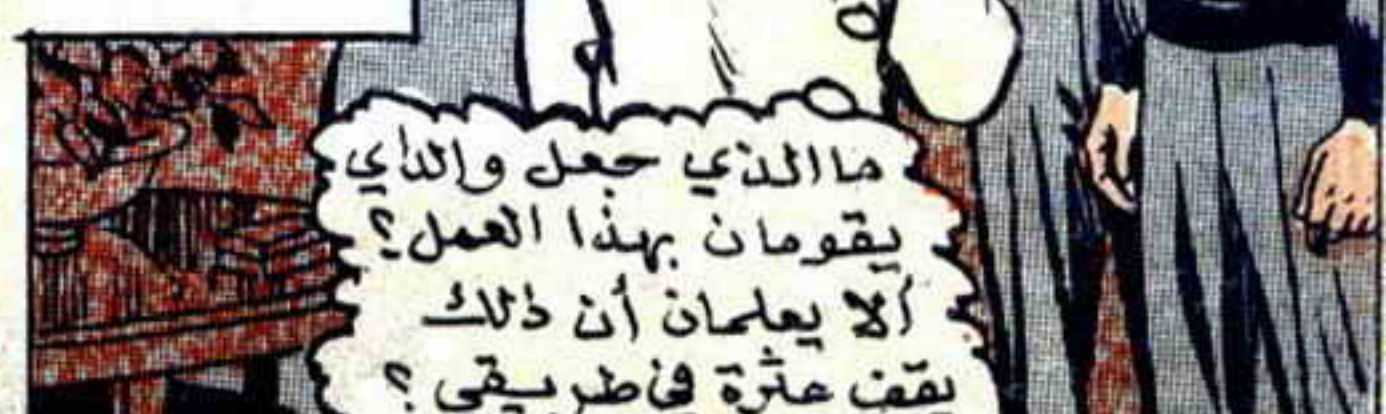 ما الذي جعل والدَاي
يقومان بهذا العمل؟
ألا يعلمان أن ذلك
يقف عثرة في طريقي؟